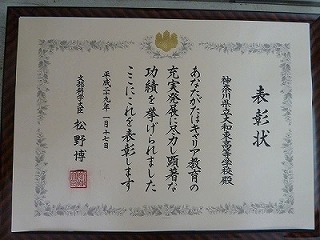 表彰状
神奈川県立大和東高等学校殿
あなたがたはキャリア教育の
充実発展に尽力し顕著な
功績を挙げられました
ここにこれを表彰します
平成二十九年一月十七日
文部科学大臣 松野博一